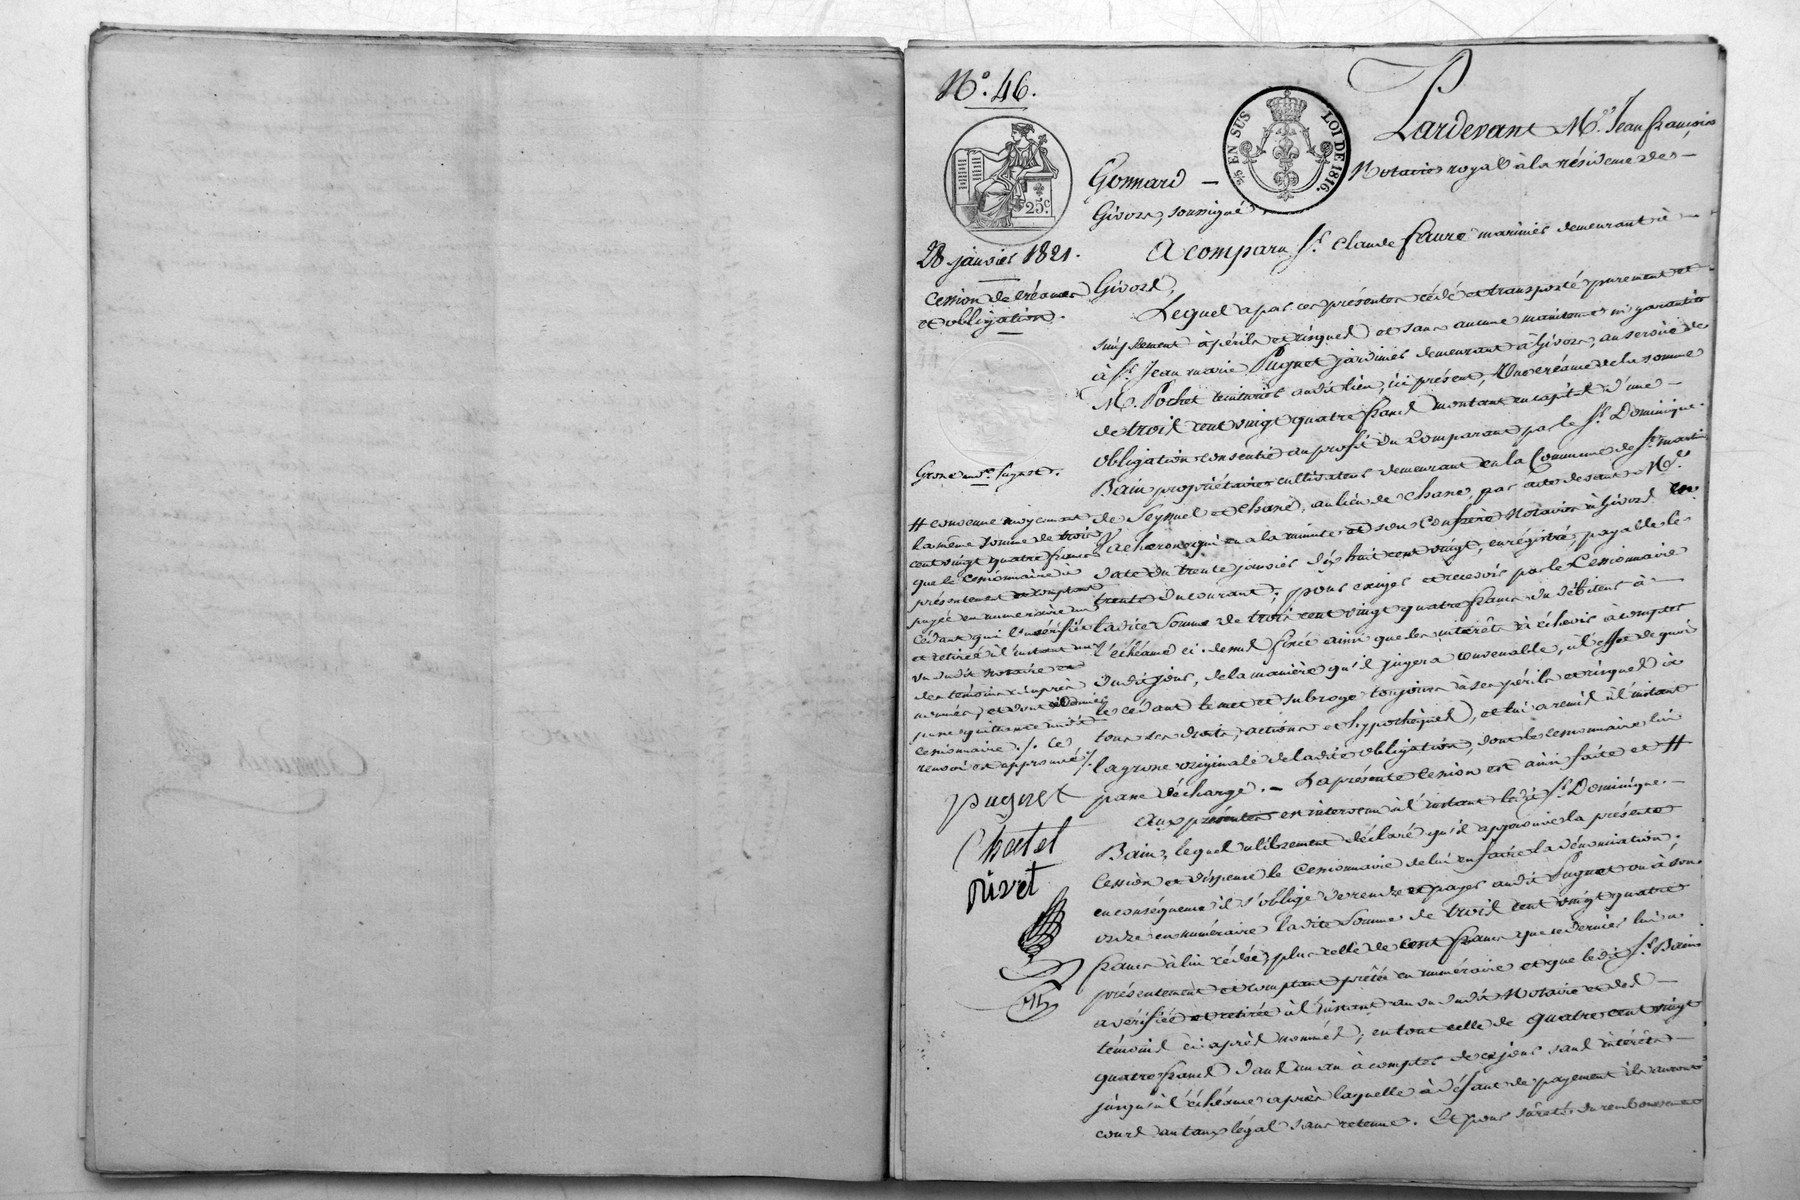 N.° 46.
5/6 EN SUS LOI DE 1816.
25.c
28 janvier 1821.
Cession de créance
et obligation.
Grosse aud. s.r Puynet.
Pardevant M.e Jean françois
Gonnard — Notaire royal à la résidence de —
Givors, soussigné,
A comparu s.r Claude faure marinier demeurant à —
Givors,
Lequel a par ces présentes cédé et transporté purement et
simplement à périls et risques et sans aucune maintenue ni garantie
à s.r Jean marie Puynet jardinier demeurant à Givors, au service de
M. Pochet teinturier audit lieu, ici présent, Une créance de la somme
de trois cent vingt quatre francs montant en capital d'une —
obligation consentie au profit du comparant par le s.r Dominique
Bain propriétaire cultivateur demeurant en la Commune de s.t martin
de Seyssuel et chane, au lieu de chane, par acte devant M.e
acheron qui en a la minute et son Confrère Notaires à Givors en
date du trente janvier dix huit cent vingt, enrégistré, payable le
trente du courant; pour exiger et recevoir par le Cessionnaire
ladite somme de trois cent vingt quatre francs du débiteur à —
l'échéance ci-dessus fixée ainsi que les intérêts à échoir à compter
dudit jour, de la manière qu'il jugera convenable, à l'effet de quoi
le cédant le met et subroge toujours à ses périls et risques à
tous ses droits, actions et hypothèques, et lui a remis à l'instant
la grosse originale de ladite obligation, dont le cessionnaire lui
passe décharge. — La présente cession est ainsi faite et #
# convenue moyennant
la même somme de trois
cent vingt quatre francs
que le cessionnaire a
présentement et comptant
payée en numéraire au
Cédant qui l'a vérifiée
et retirée à l'instant au
vu dudit notaire et
des témoins ci après
nommés, et dont
passe quittance audit
cessionnaire ./. le
renvoi est approuvé ./.
Puynet
Chatel
Rivet
aux présentes est intervenu à l'instant ledit s.r Dominique —
Bain, lequel a librement déclaré qu'il approuve la présente
Cession et dispense le Cessionnaire de lui en faire la dénonciation.
en conséquence il s'oblige de rendre et payer audit Puynet ou à son
ordre en numéraire ladite somme de trois cent vingt quatre
francs à lui cédée, plus celle de cent francs que ce dernier lui a
présentement et comptant prêtée en numéraire et que ledit s.r Bain
a vérifiée et retirée à l'instant au vu dudit Notaire et des —
témoins ci après nommés; en tout celle de quatre cent vingt
quatre francs dans un an à compter de ce jour sans intérêts —
jusqu'à l'échéance après laquelle à défaut de payement ils auront
cours au taux légal sans retenue. Et pour sûreté du remboursement